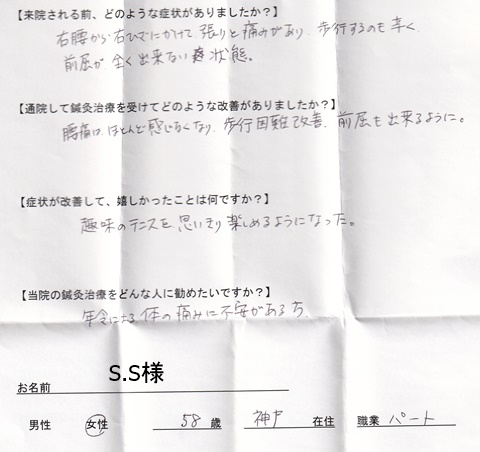 【来院される前、どのような症状がありましたか？】
右腰から右ひざにかけて張りと痛みがあり、歩行するのも辛く、
前屈が全く出来ない状態。
【通院して鍼灸治療を受けてどのような改善がありましたか？】
腰痛は、ほとんど感じなくなり、歩行困難改善、前屈も出来るように。
【症状が改善して、嬉しかったことは何ですか？】
趣味のテニスを思いきり楽しめるようになった。
【当院の鍼灸治療をどんな人に勧めたいですか？】
年令による体の痛みに不安がある方
お名前 S.S様
男性 女性 58 歳 神戸 在住 職業 パート